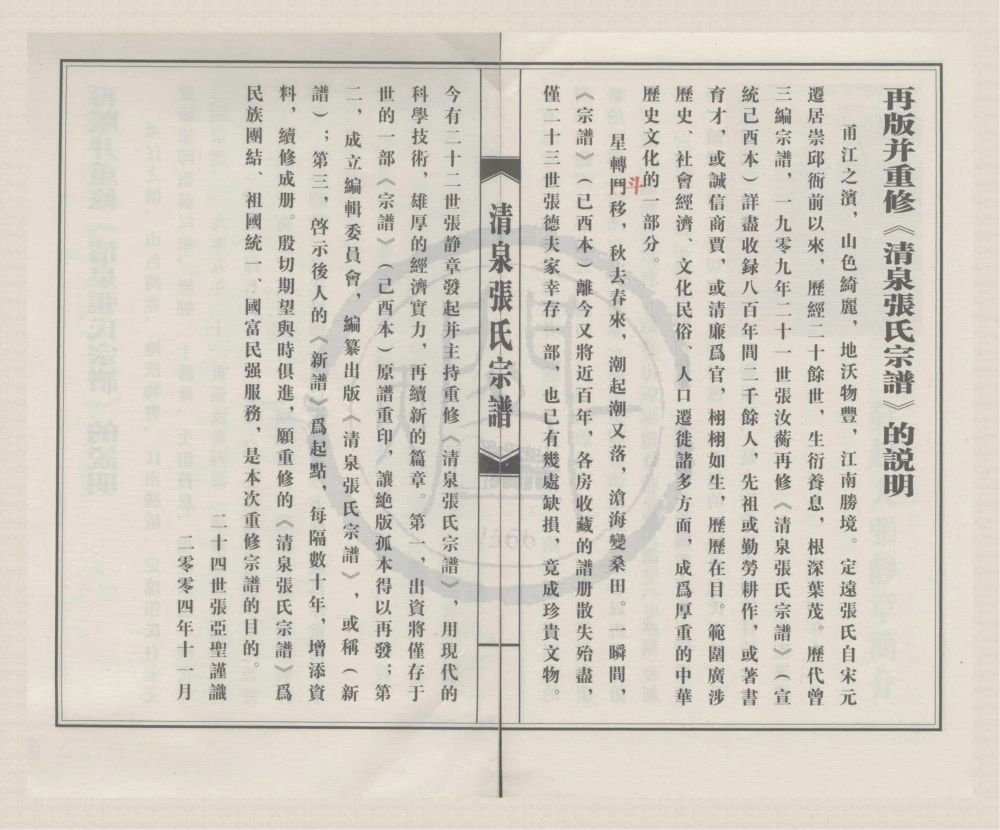 再版并重修《清泉張氏宗譜》的説明
甬江之濱，山色綺麗，地沃物豐，江南勝境。定遠張氏自宋元
遷居崇邱衙前以來，歷經二十餘世，生衍養息，根深葉茂。歷代曾
三編宗譜，一九零九年二十一世張汝蘅再修《清泉張氏宗譜》（宣
統己酉本）詳盡收録八百年間二千餘人，先祖或勤勞耕作，或著書
育才，或誠信商賈，或清廉爲官，栩栩如生，歷歷在目。範圍廣涉
歷史、社會經濟、文化民俗、人口遷徙諸多方面，成爲厚重的中華
歷史文化的一部分。
星轉鬥移，秋去春來，潮起潮又落，滄海變桑田。一瞬間，
斗
《宗譜》（己酉本）離今又將近百年，各房收藏的譜册散失殆盡，
僅二十三世張德夫家幸存一部，也已有幾處缺損，竟成珍貴文物。
清泉張氏宗譜
今有二十二世張静章發起并主持重修《清泉張氏宗譜》，用現代的
科學技術，雄厚的經濟實力，再續新的篇章。第一，出資將僅存于
世的一部《宗譜》（己酉本）原譜重印，讓絶版孤本得以再發；第
二，成立編輯委員會，編纂出版《清泉張氏宗譜》，或稱（新
譜）；第三，啓示後人的《新譜》爲起點，每隔數十年，增添資
料，續修成册。殷切期望與時俱進，願重修的《清泉張氏宗譜》爲
民族團結、祖國統一、國富民强服務，是本次重修宗譜的目的。
二十四世張亞聖謹識
二零零四年十一月